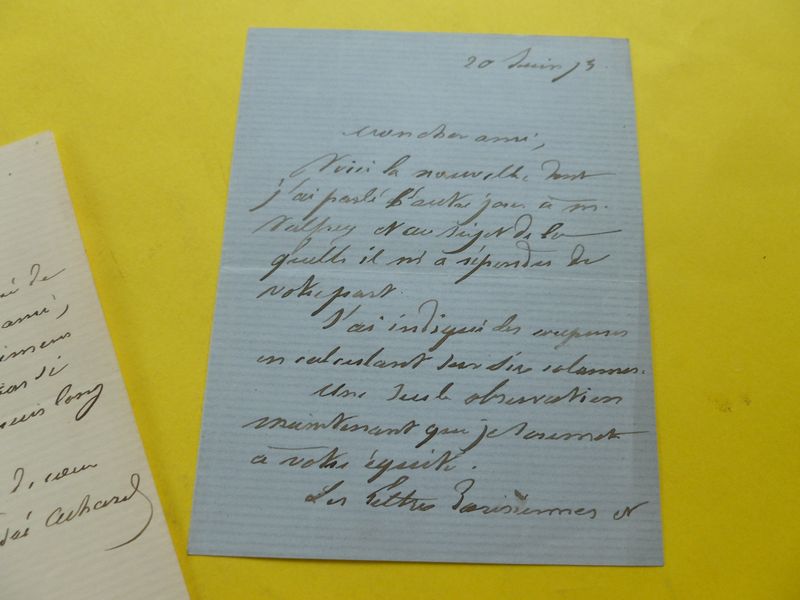 20 Juin 73.
Mon cher ami,
Voici la nouvelle dont
j'ai parlé l'autre jour à M.
Valfrey et au sujet de la
quelle il m'a répondu de
votre part.
J'ai indiqué des coupures
en calculant sur six colonnes.
Une seule observation
maintenant que je soumets
à votre équité.
Les lettres Parisiennes et
de
ami,
long
de cœur
Achard